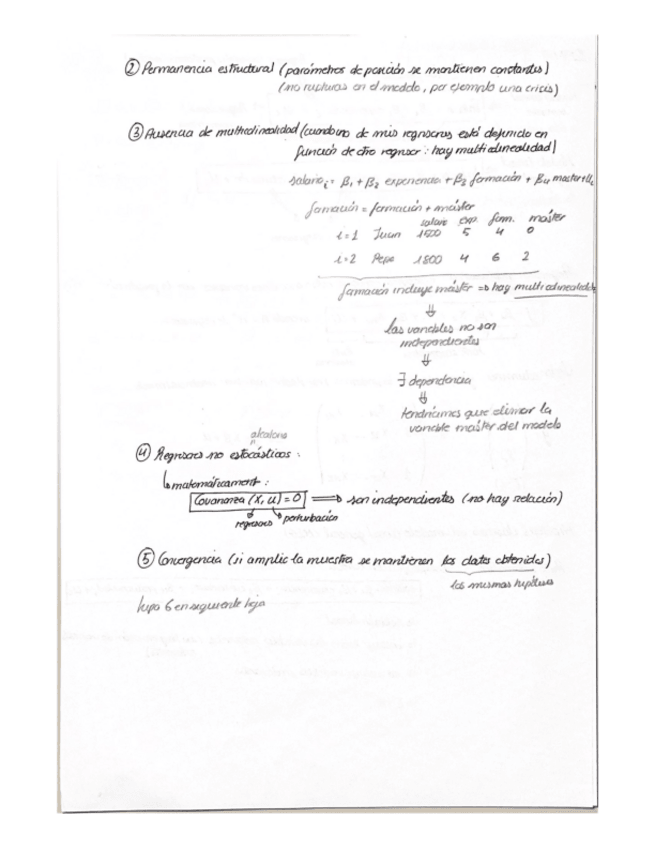 ② Permanencia estructural (parámetros de posición se mantienen constantes)
(no rupturas en el modelo, por ejemplo una crisis)
③ Ausencia de multicolinealidad (cuando uno de mis regresores está definido en
función de otro regresor: hay multicolinealidad)
salario i = β1 + β2 experiencia + β3 formación + β4 master + Ui
formación = formación + máster
salario exp. form. máster
i=1 Juan 1500 5 4 0
i=2 Pepe 1800 4 6 2
formación incluye máster => hay multicolinealidad
⇓
las variables no son
independientes
⇓
∃ dependencia
⇓
tendríamos que eliminar la
variable máster del modelo
aleatorio
④ Regresores no estocásticos:
↳ matemáticament:
Covarianza (X, u) = 0 ⟹ son independientes (no hay relación)
regresores perturbación
⑤ Convergencia (si amplío la muestra se mantienen los datos obtenidos)
las mismas hipótesis
hipo 6 en siguiente hoja